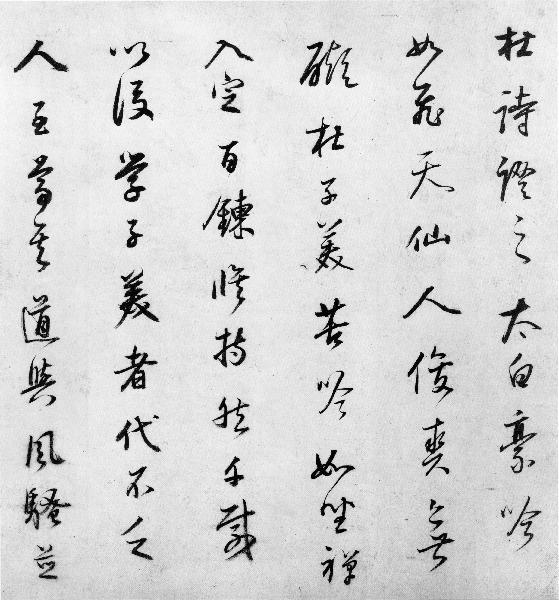 杜詩證之太白豪吟
如飛天仙人俊爽無
礙杜子美苦吟如坐禅
入定百鍊修持然千載
以後学子美者代不乏
人至尊其道與風騷並